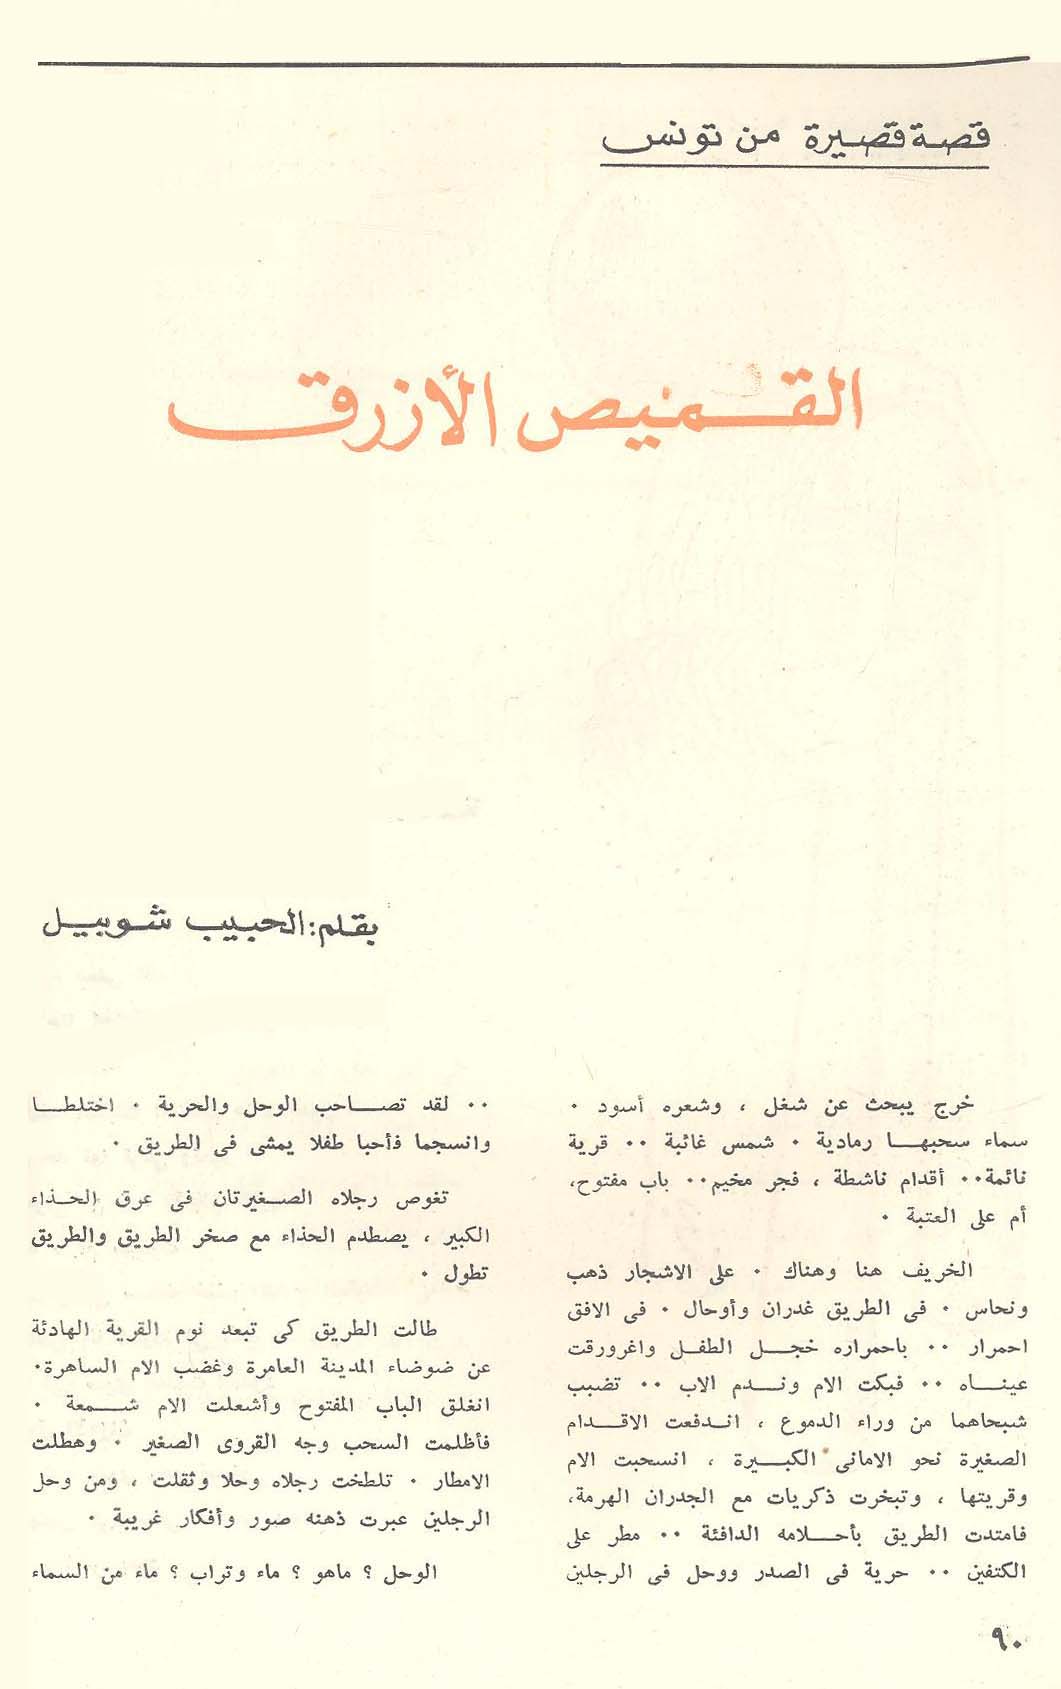 قصة قصيرة من تونس
القميص الأزرق
بقلم: الحبيب شوبيل
خرج يبحث عن شغل ، وشعره أسود ٠
سماء سحبهــا رمادية ٠ شمس غائبة ٠٠ قرية
نائمة٠٠ أقدام ناشطة ، فجر مخيم٠٠ باب مفتوح،
أم على العتبة ٠
الخريف هنا وهناك ٠ على الاشجار ذهب
ونحاس ٠ فى الطريق غدران وأوحال ٠ فى الافق
احمرار ٠٠ باحمراره خجــل الطفــل واغرورقت
عينــاه ٠٠ فبكت الام ونــدم الاب ٠٠ تضبب
شبحاهما من وراء الدموع ، انــدفعت الاقــدام
الصغيرة نحو الامانى الكبــيرة ، انسحبت الام
وقريتها ، وتبخرت ذكريات مع الجدران الهرمة،
فامتدت الطريق بأحــلامه الدافئة ٠٠ مطر على
الكتفين ٠٠ حرية فى الصدر ووحل فى الرجلين
٠٠ لقد تصــاحب الوحل والحرية ٠ اختلطــا
وانسجما فأحبا طفلا يمشى فى الطريق ٠
تغوص رجلاه الصــغيرتان فى عرق الحــذاء
الكبير ، يصطدم الحذاء مع صخر الطريق والطريق
تطول ٠
طالت الطريق كى تبعد نوم القرية الهادئة
عن ضوضاء المدينة العامرة وغضب الام الساهرة٠
انغلق الباب المفتوح وأشعلت الام شــمعة ٠
فأظلمت السحب وجه القروى الصغير ٠ وهطلت
الامطار ٠ تلطخت رجلاه وحلا وثقلت ، ومن وحل
الرجلين عبرت ذهنه صور وأفكار غريبة ٠
الوحل ؟ ماهو ؟ ماء وتراب ؟ ماء من السماء
٩٠